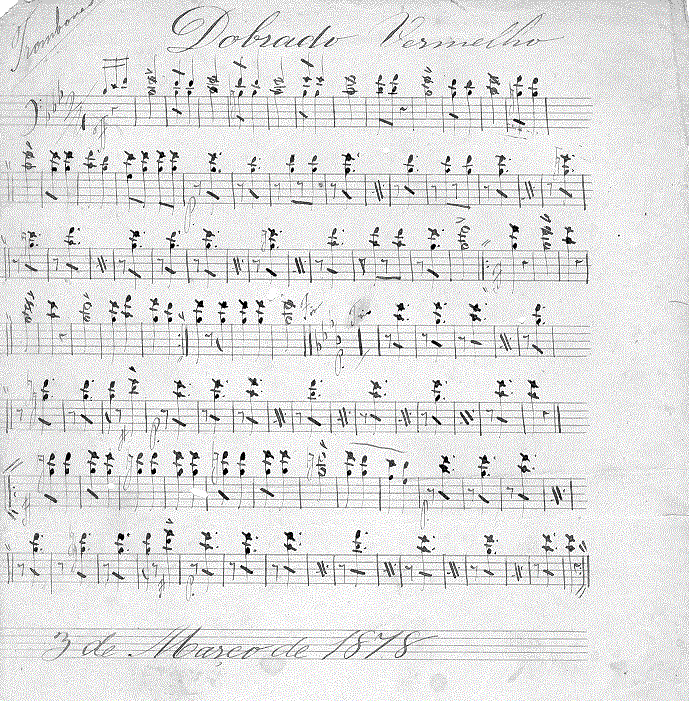 Trombones
Dobrado Vermelho
Trio
3 de Março de 1878